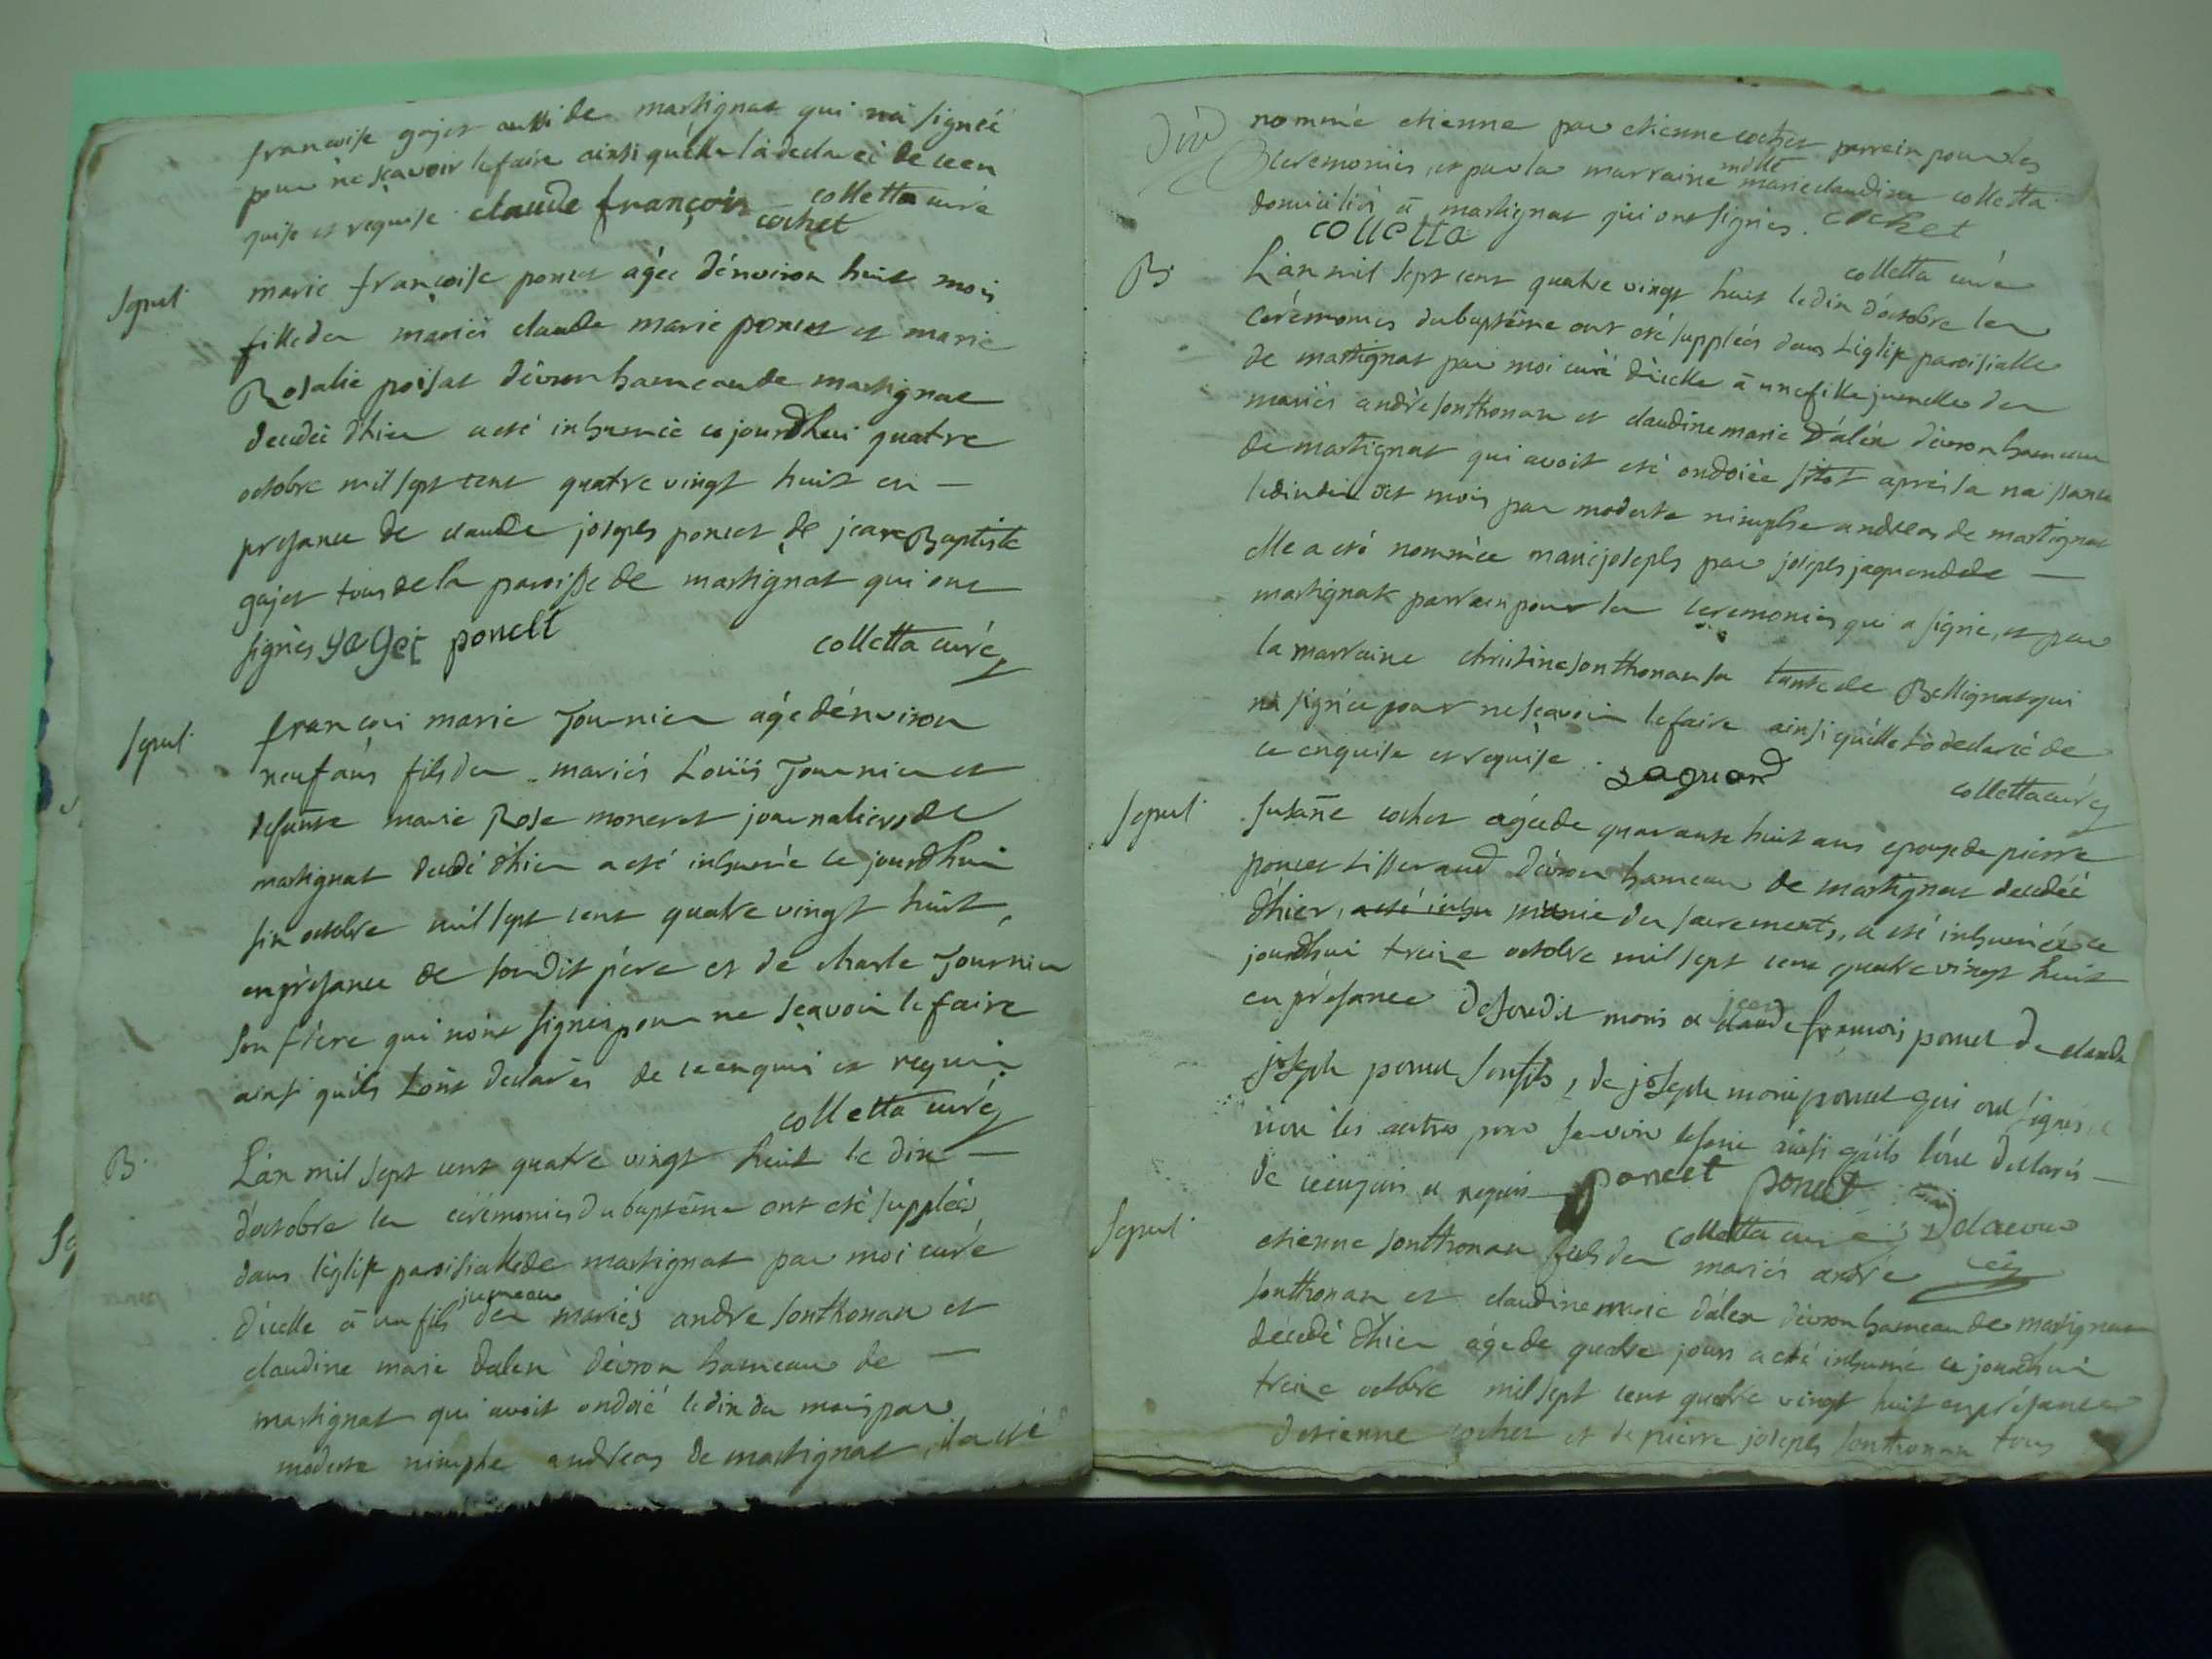 francoise gojet aussi de martignat qui na signée
pour ne sçavoir le faire ainsi quélle la declareé de ce en
quise et requise claude françois cochet colletta curé
Sepul. marie françoise poncet agée dénviron huit mois
fille des mariés claude marie poncet et marie
Rosalie poisat dévron hameau de martignat
decedeé dhier a eté inhumeé ce jourdhui quatre
octobre mil sept cent quatre vingt huit en —
presance de claude joseph poncet de jean Baptiste
gojet tous de la paroisse de martignat qui ont
signés gojet poncet colletta curé
Sepul. françois marie Journier agé dénviron
neuf ans fils des mariés Loüis Journier et
defunte marie Rose moneret journaliers de
martignat decedé dhier a eté inhumé ce jourdhui
six octobre mil sept cent quatre vingt huit,
en présance de son dit pére et de charle Journier
son frére qui nont signés pour ne sçavoir le faire
ainsi quils Lont declarés de ce enquis et requis
colletta curé
B. Lán mil sept cent quatre vingt huit le dix —
doctobre les céremonies du baptême ont eté suppleés
dans léglise paroisialle de martignat par moi curé
dicelle á un fils jumeau des mariés andre sonthonax et
claudine marie dalex dévron hameau de —
martignat qui avoit ondoié le dix du mois par
modeste nimphe andreas de martignat, il a eté
nommé etienne par etienne cochet parrein pour les
ceremonies, et par la marraine marie claudine colletta
domiciliés á martignat qui ont signés. cochet
colletta
colletta curé
B. Lán mil sept cent quatre vingt huit le dix doctobre les
cérémonies du baptême ont eté suppleés dans Léglise paroisialle
de martignat par moi curé dicelle á une fille jumelle des
mariés andré sonthonax et claudine marie Dálex dévron hameau
de martignat qui avoit eté ondoiée sitot aprés sa naissance
le dix du mois par modeste nimphe andreas de martignat
elle a eté nommée marie joseph par joseph jaquand de —
martignat parrain pour les ceremonies qui a signé, et par
la marraine christine sonthonax sa tante de Bellignat qui
na signée pour ne sçavoir le faire ainsi quélle lá declaré de
ce enquise et requise. Jaquand
colletta curé
Sepul. susane cochet agée de quarante huit ans epouse de pierre
poncet tisserand dévron hameau de martignat decedeé
dhier, a eté inhu munie des sacrements, a eté inhumée ce
jourdhui treize octobre mil sept cent quatre vingt huit
en présance de sondit maris et claude jean françois poncet de claude
joseph poncet son fils, de joseph marie poncet qui ont signés,
non les autres pour savoir le faire ainsi quils lont declarés —
de ce enquis et requis poncet poncet
colletta curé
Sepul. etienne sonthonax fils des mariés andre
sonthonax et claudine marie dálex dévron hameau de martignat
décedé dhier agé de quatre jours a eté inhumé ce jourdhui
treize octobre mil sept cent quatre vingt huit en présance
detienne cochet et de pierre joseph sonthonax tous